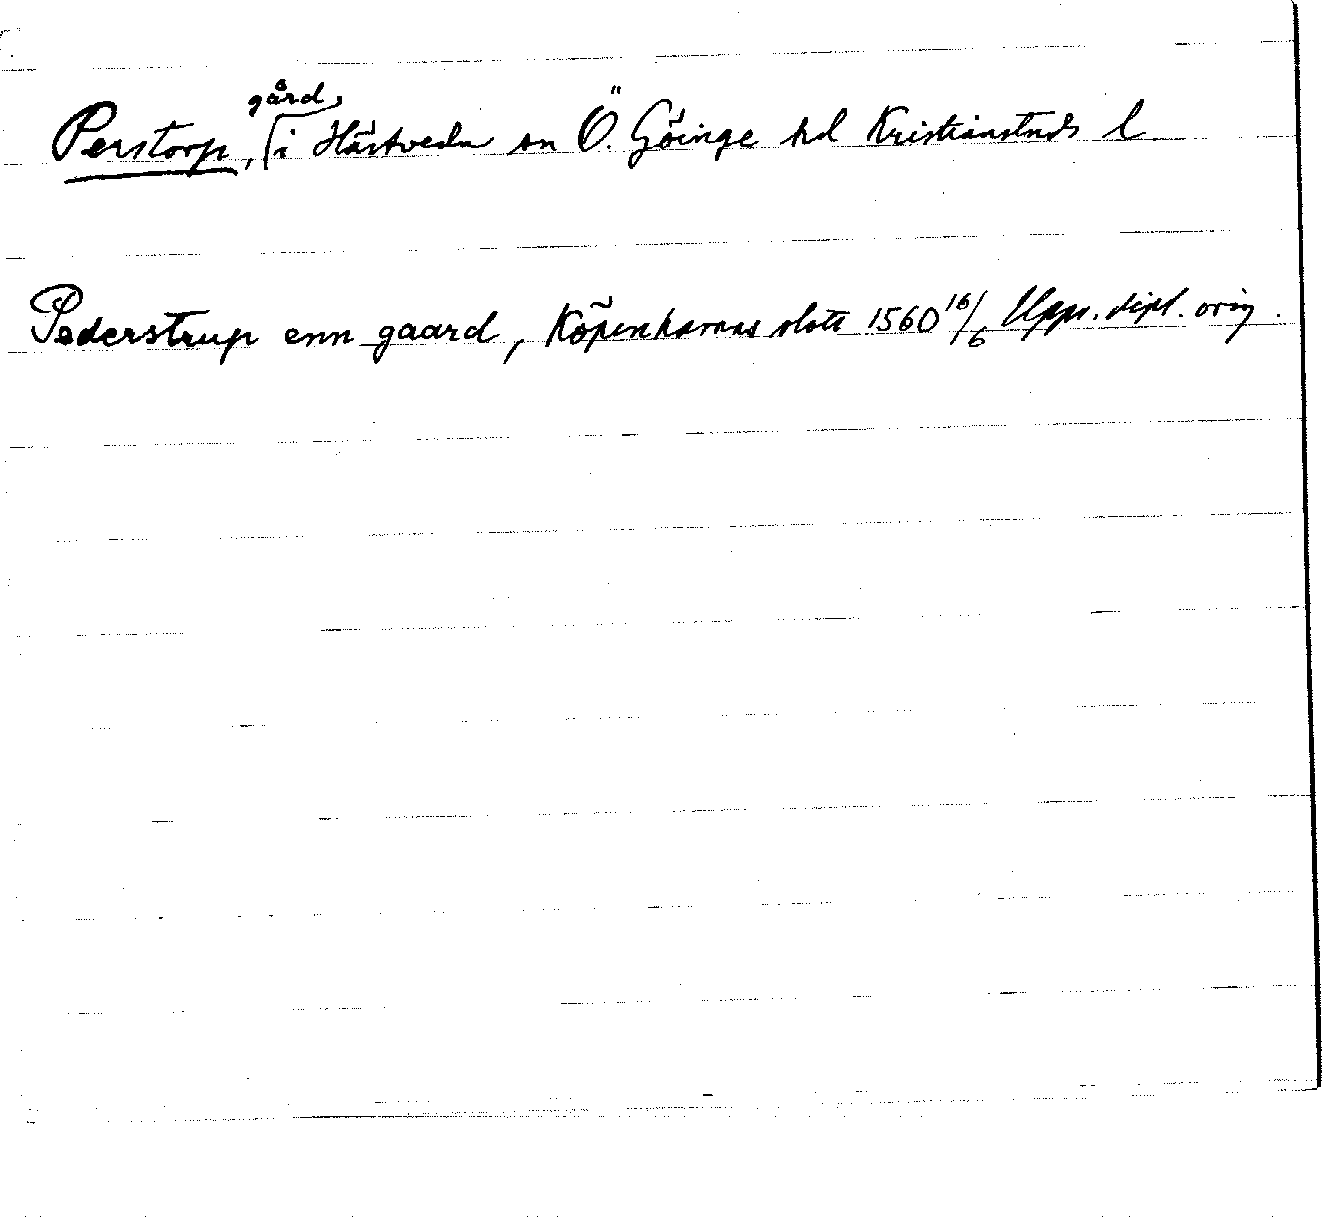 Perstorp, gård, i Hästveda sn Ö. Göinge hd Kristianstads l
Pederstrup enn gaard, Köpenhamns slott 1560 16/6 Upps. dipl. orig.